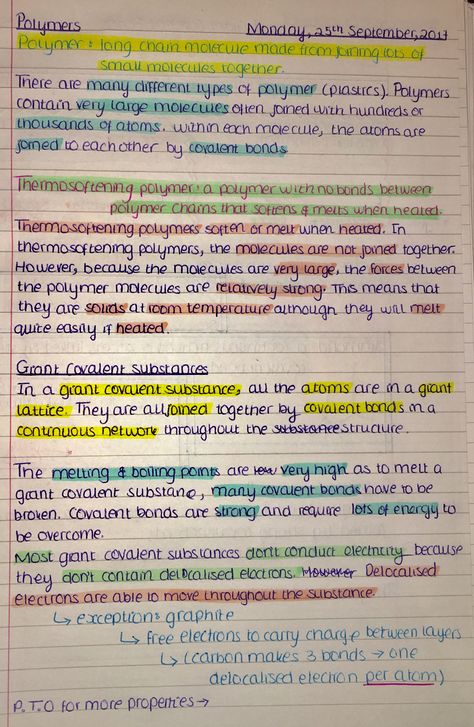 Polymers Monday, 25th September, 2017
Polymer: long chain molecule made from joining lots of
small molecules together.
There are many different types of polymer (plastics). Polymers
contain very large molecules often joined with hundreds or
thousands of atoms. within each molecule, the atoms are
joined to each other by covalent bonds
Thermosoftening polymer: a polymer with no bonds between
polymer chains that softens & melts when heated.
Thermosoftening polymers soften or melt when heated. In
thermosoftening polymers, the molecules are not joined together.
However, because the molecules are very large, the forces between
the polymer molecules are relatively strong. This means that
they are solids at room temperature although they will melt
quite easily if heated.
Giant Covalent Substances
In a giant covalent substance, all the atoms are in a giant
lattice. They are all joined together by covalent bonds in a
continuous network throughout the substance structure.
The melting & boiling points are low very high as to melt a
giant covalent substane, many covalent bonds have to be
broken. Covalent bonds are strong and require lots of energy to
be overcome.
Most giant covalent substances don't conduct electricity because
they don't contain delocalised electrons. However Delocalised
electrons are able to move throughout the substance.
↳ exception: graphite
↳ free electrons to carry charge between layers
↳ (carbon makes 3 bonds → one
delocalised electron per atom)
P.T.O for more properties →